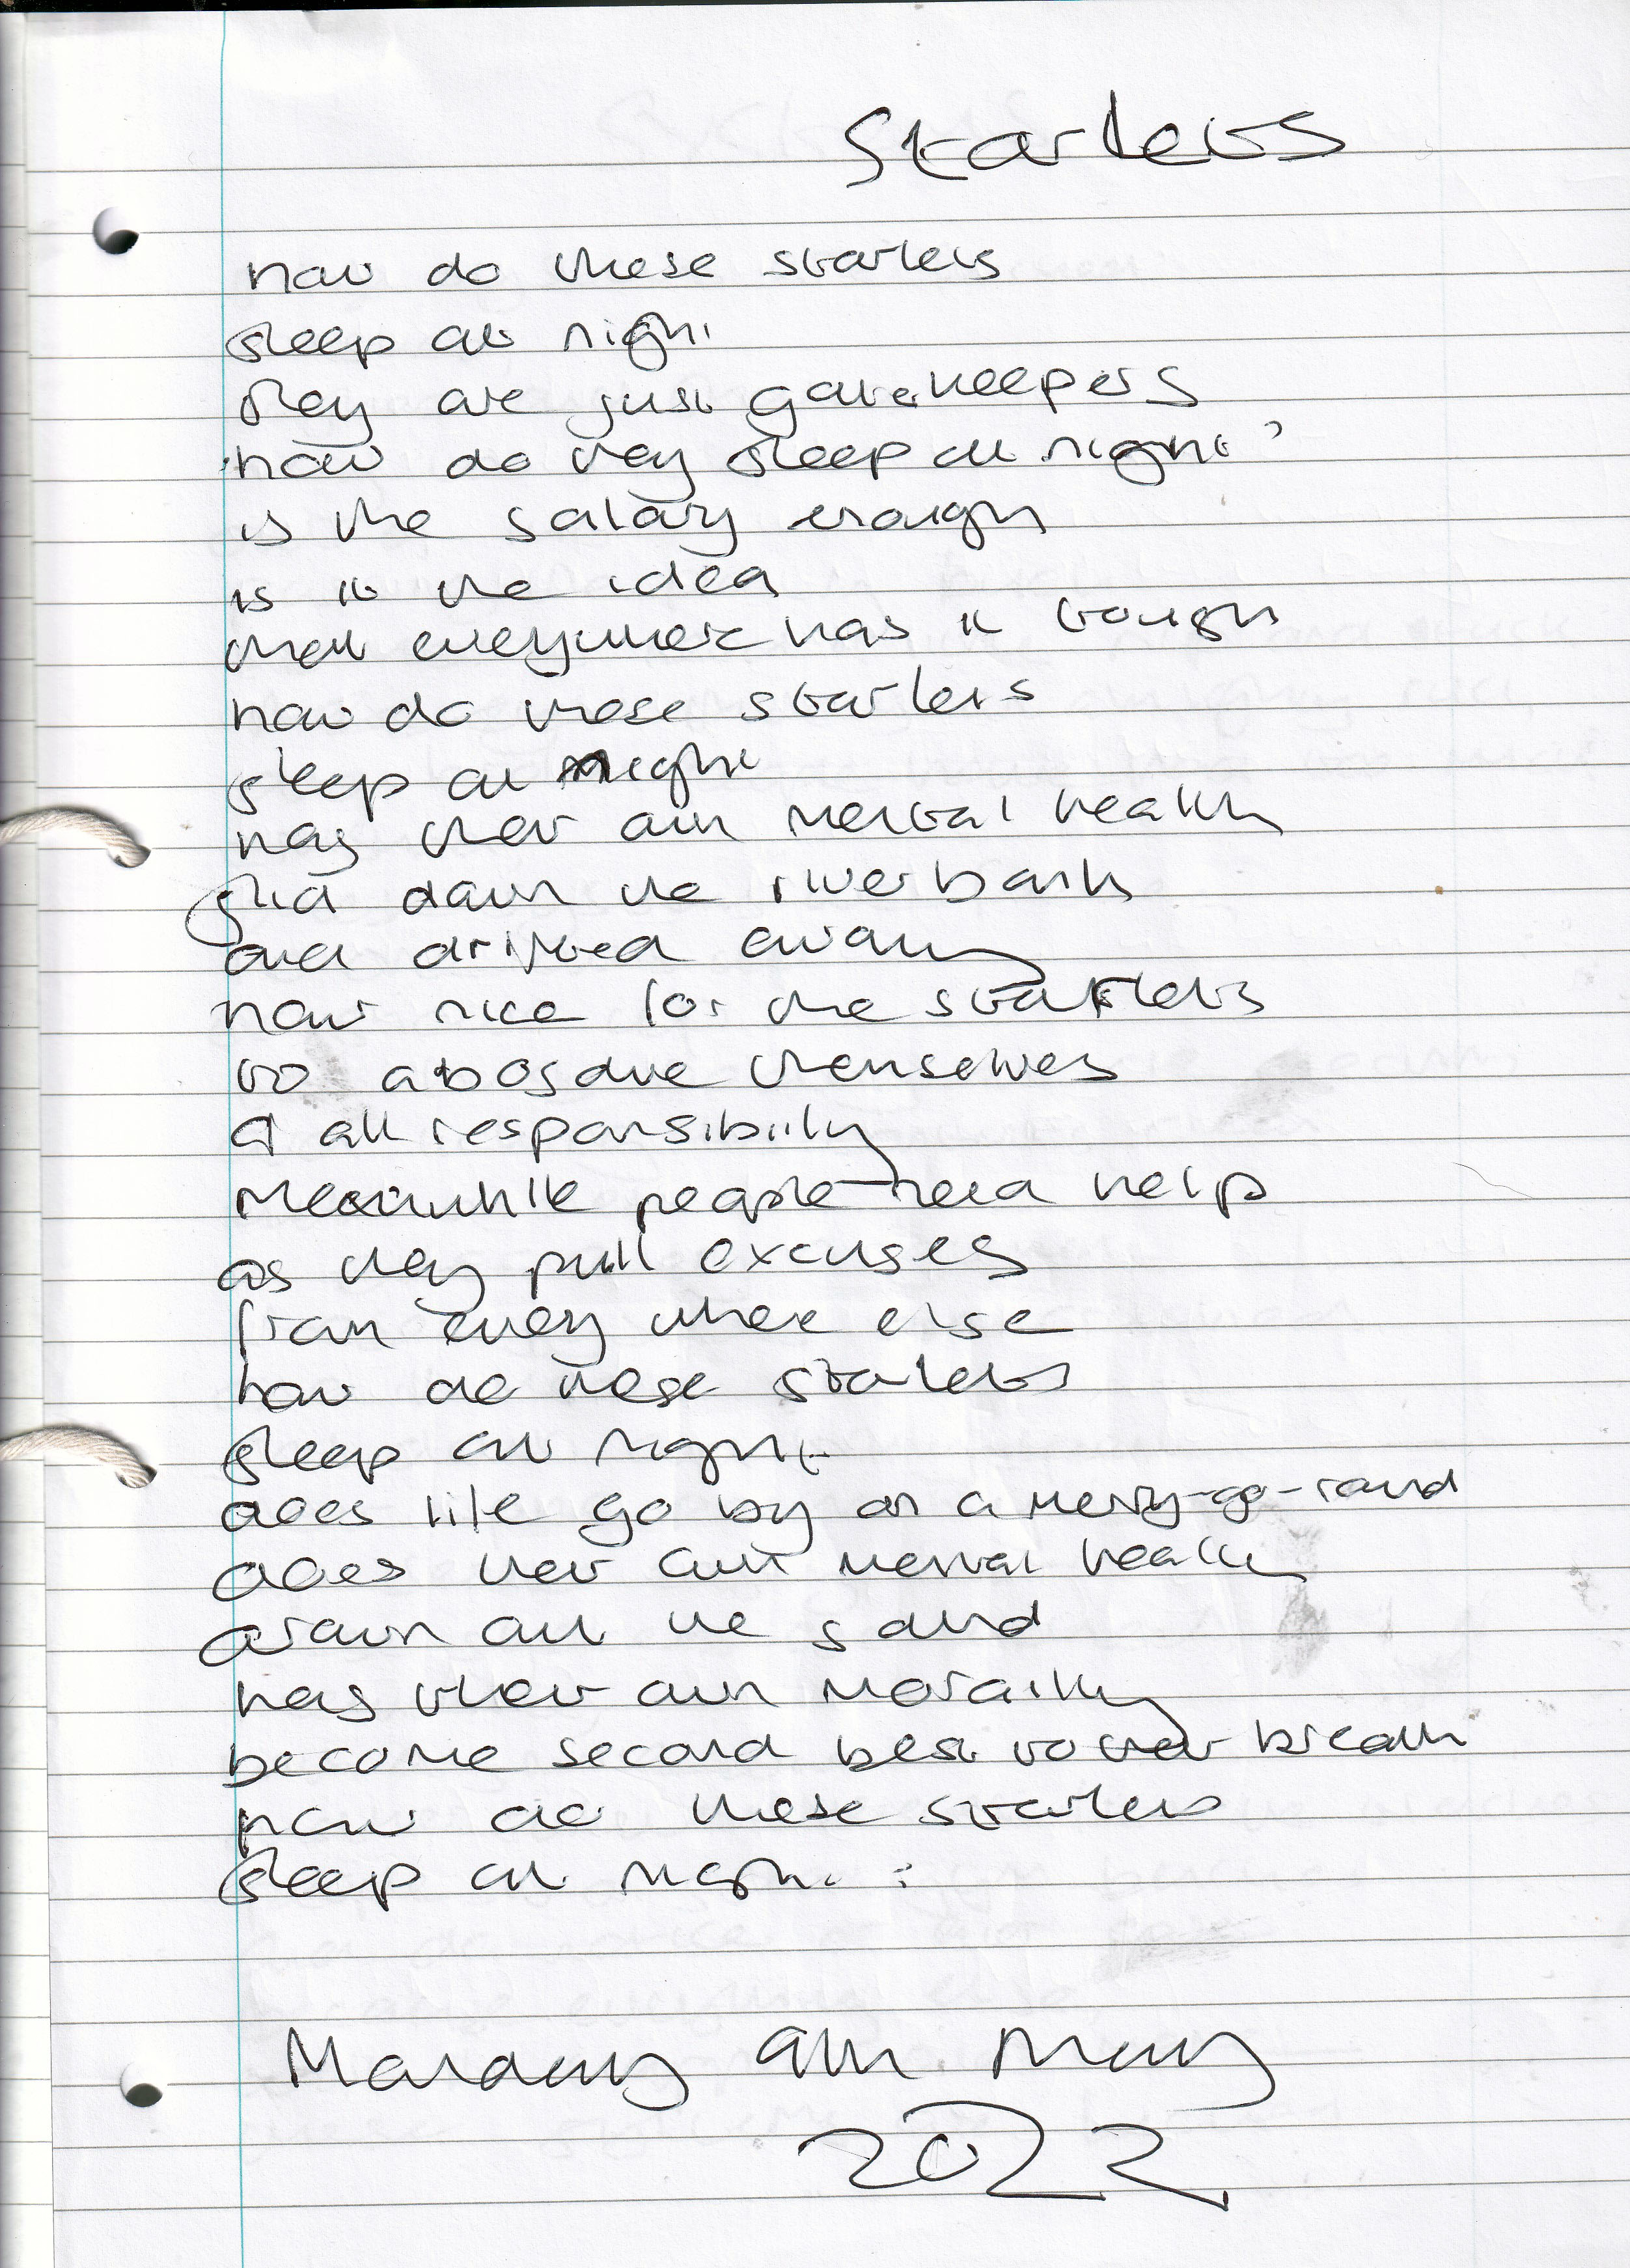 Starlets
how do these starlets
sleep at night
they are just gatekeepers
how do they sleep at night?
is the salary enough
is it the idea
that everywhere has it tough
how do these starlets
sleep at night
has their own mental health
slid down the riverbank
and drifted away
how nice for the starlets
to abosolve themselves
of all responsibiily
Meanwhile people need help
as they pull excuses
from every where else
how do these starlets
sleep at night
does life go by on a merry-go-round
does their own mental health
drown out the sound
has their own morality
become second best to their breath
how do these starlets
sleep at night :
Monday 9th May
2022